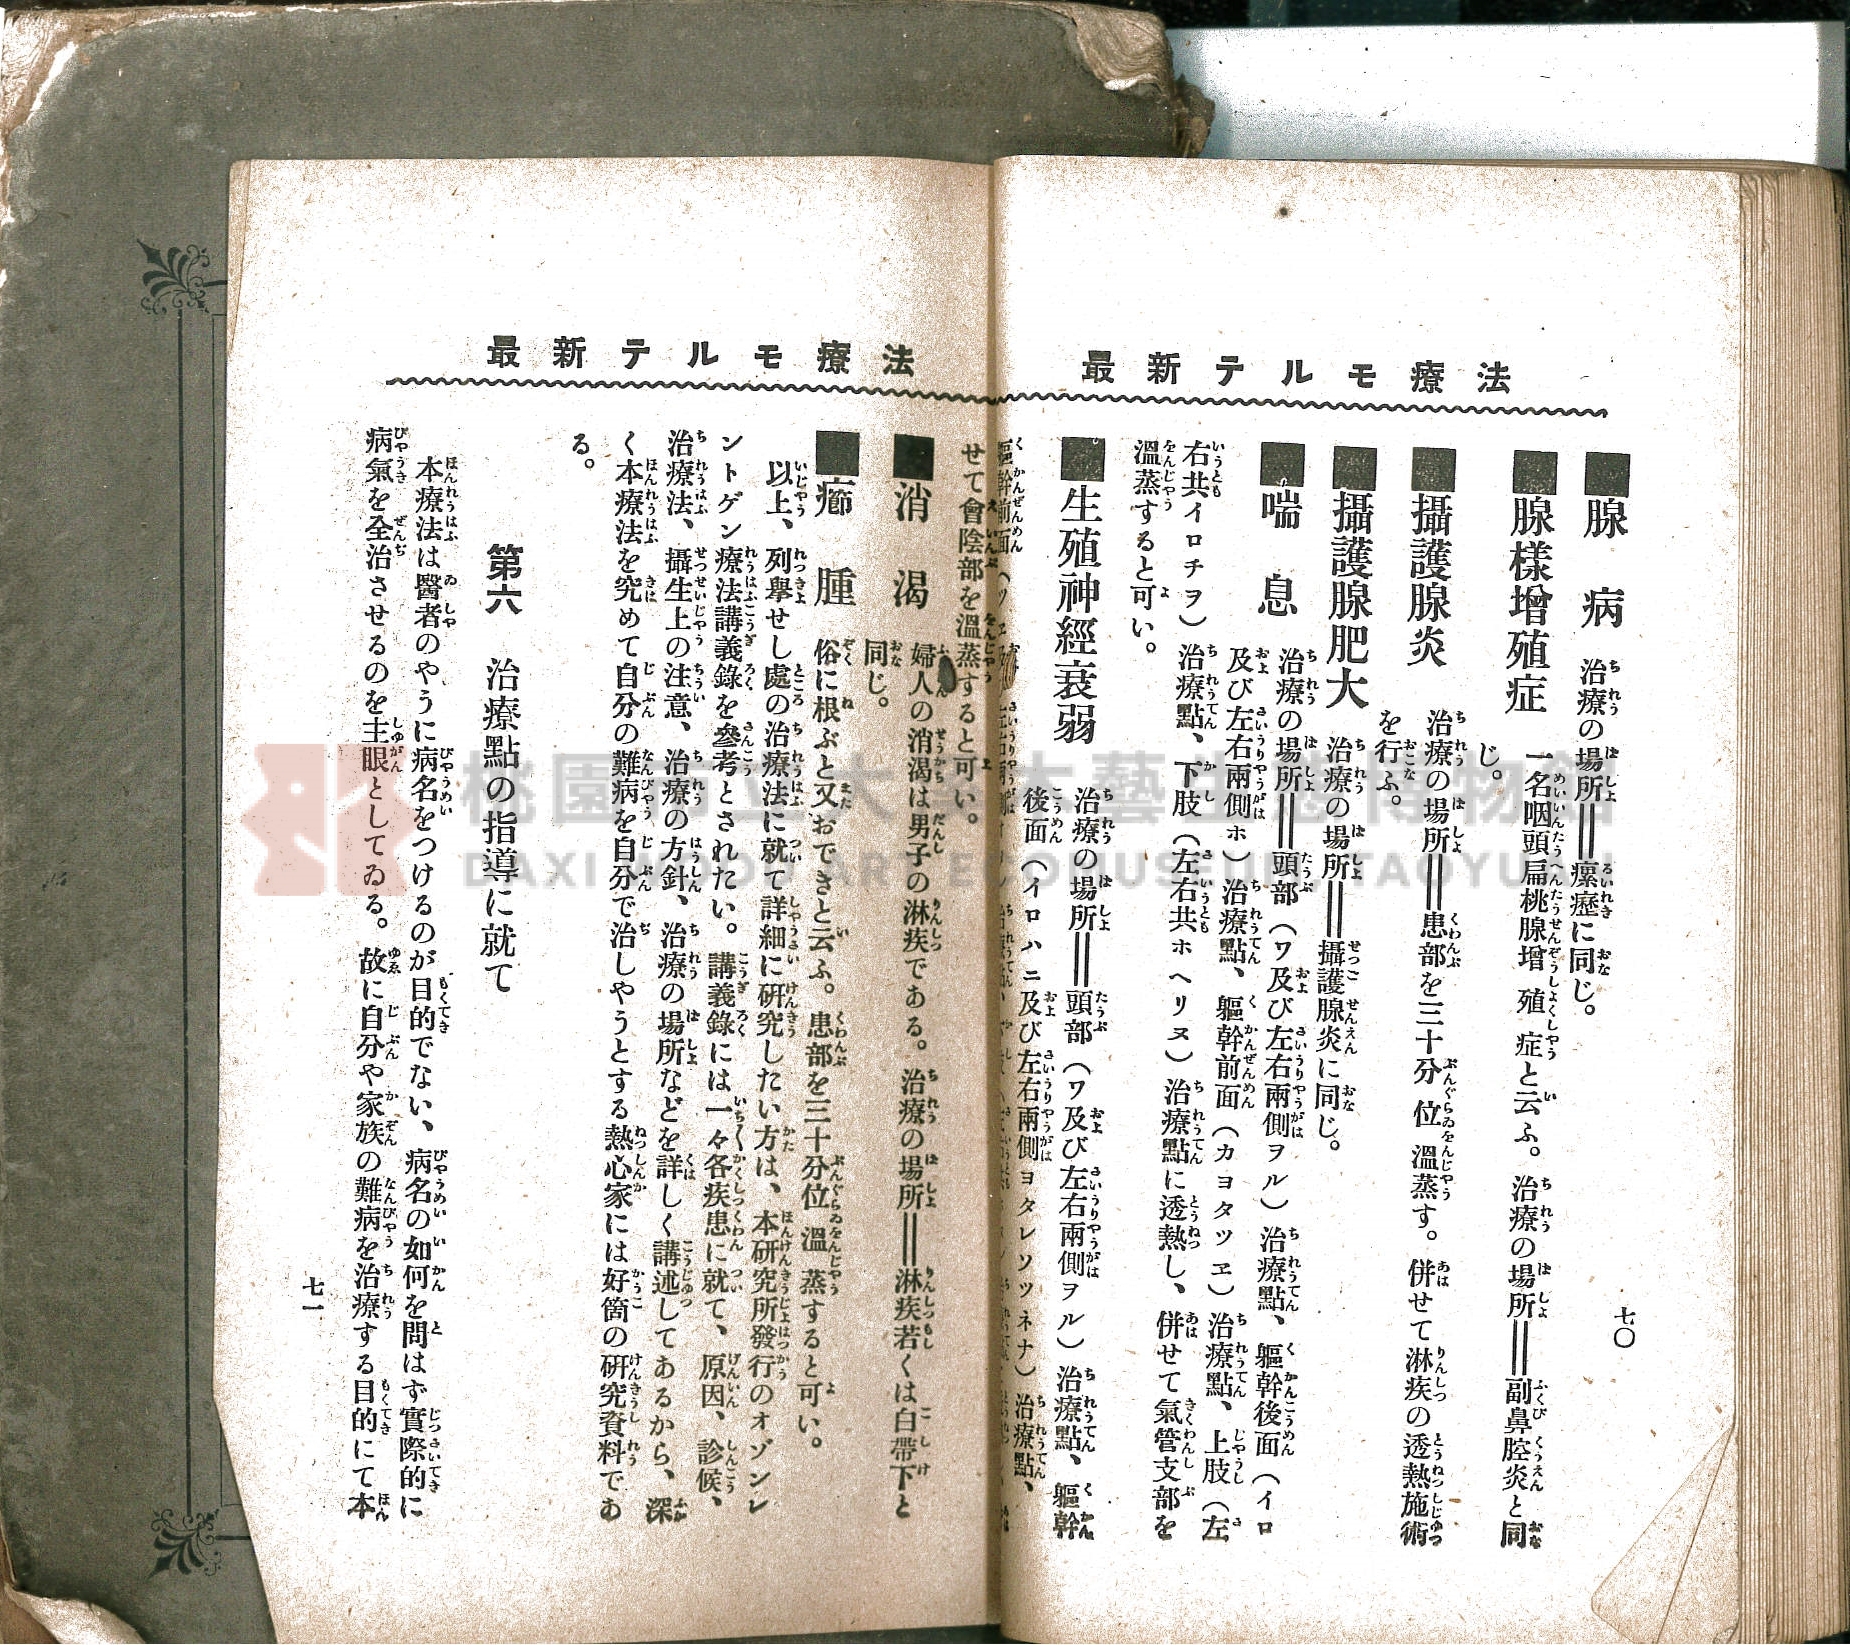 最新テルモ療法
七〇
■腺病 治療の場所＝瘰癧に同じ。
■腺樣增殖症 一名咽頭扁桃腺增殖症と云ふ。治療の場所＝副鼻腔炎と同
じ。
■攝護腺炎 治療の場所＝患部を三十分位溫蒸す。併せて淋疾の透熱施術
を行ふ。
■攝護腺肥大 治療の場所＝攝護腺炎に同じ。
■喘息 治療の場所＝頭部（ワ及び左右兩側ヲル）治療點、軀幹後面（イロ
及び左右兩側ホ）治療點、軀幹前面（カヨタツヱ）治療點、上肢（左
右共イロチヲ）治療點、下肢（左右共ホヘリヌ）治療點に透熱し、併せて氣管支部を
溫蒸すると可い。
■生殖神經衰弱 治療の場所＝頭部（ワ及び左右兩側ヲル）治療點、軀幹
後面（イロハニ及び左右兩側ヨタレソツネナ）治療點、
軀幹前面（ツヱ
最新テルモ療法
せて會陰部を溫蒸すると可い。
■消渴 婦人の消渴は男子の淋疾である。治療の場所＝淋疾若くは白帶下と
同じ。
■癤腫 俗に根ぶと又おできと云ふ。患部を三十分位溫蒸すると可い。
以上、列擧せし處の治療法に就て詳細に硏究したい方は、本硏究所發行のオゾンレ
ントゲン療法講義錄を參考とされたい。講義錄には一々各疾患に就て、原因、診候、
治療法、攝生上の注意、治療の方針、治療の場所などを詳しく講述してあるから、深
く本療法を究めて自分の難病を自分で治しやうとする熱心家には好箇の硏究資料であ
る。
第六 治療點の指導に就て
本療法は醫者のやうに病名をつけるのが目的でない、病名の如何を問はず實際的に
病氣を全治させるのを主眼としてゐる。故に自分や家族の難病を治療する目的にて本
七一
桃園市立大溪木藝生態博物館
DAXI WOOD ART ECOMUSEUM, TAOYUAN